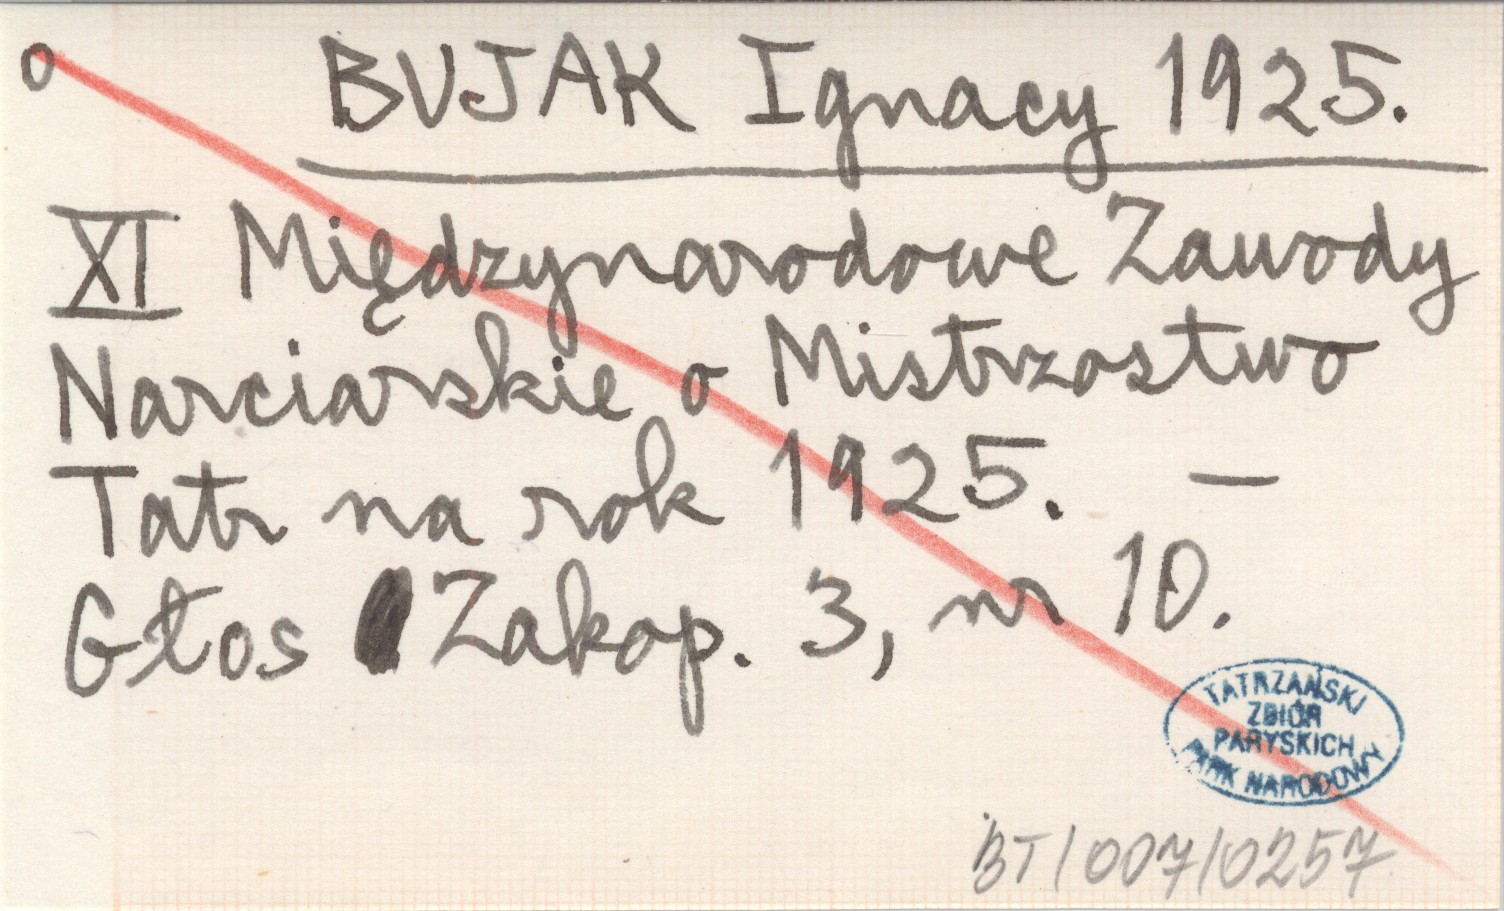 o BUJAK Ignacy 1925.
XI Międzynarodowe Zawody
Narciarskie o Mistrzostwo
Tatr na rok 1925. —
Głos Zakop. 3, nr 10.
TATRZAŃSKI
ZBIÓR
PARYSKICH
PARK NARODOWY
BT/007/0257